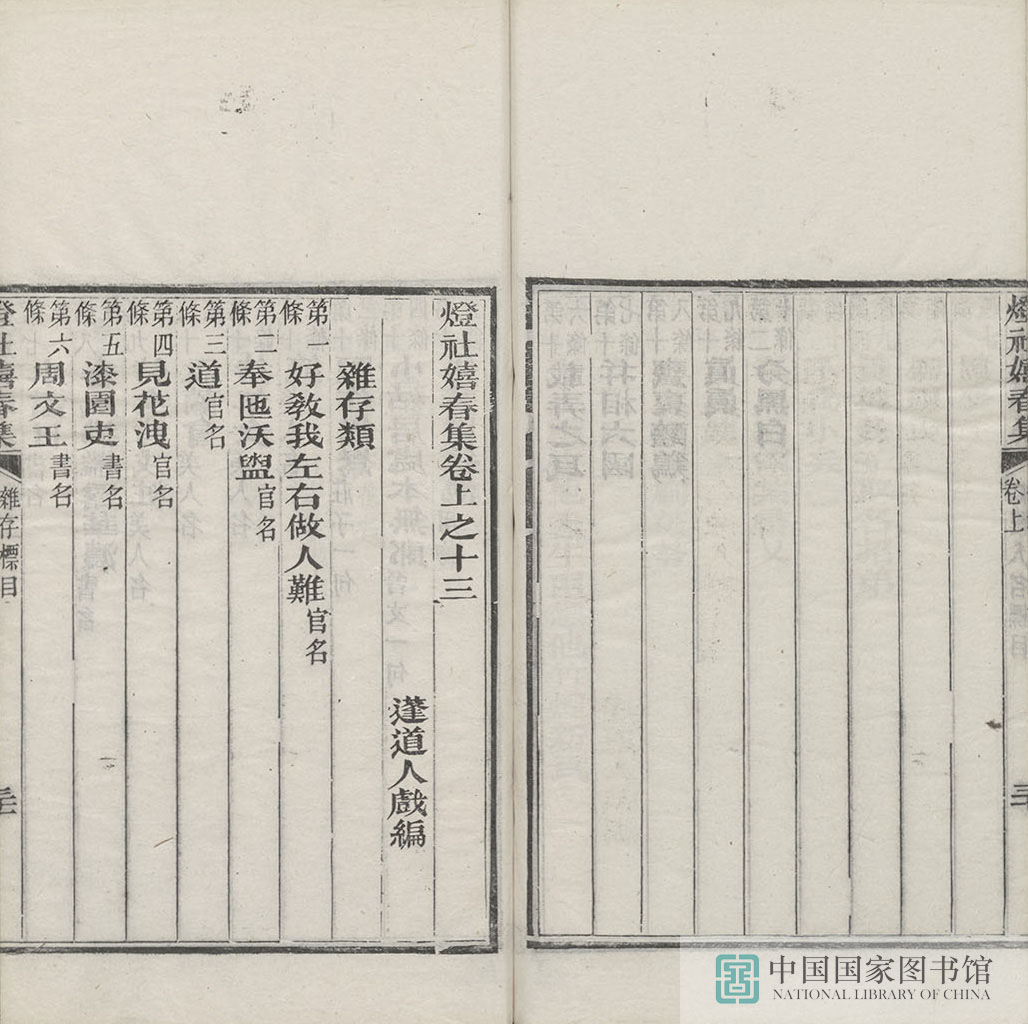 燈社嬉春集
卷上
人名標目
三十
燈社嬉春集卷上之十三
蘧道人戲編
雜存類
第一條 好教我左右做人難 官名
第二條 奉匜沃盥 官名
第三條 道 官名
第四條 見花洩 官名
第五條 漆園吏 書名
第六條 周文王 書名
燈社嬉春集
雜存標目
中国国家图书馆
NATIONAL LIBRARY OF CHINA